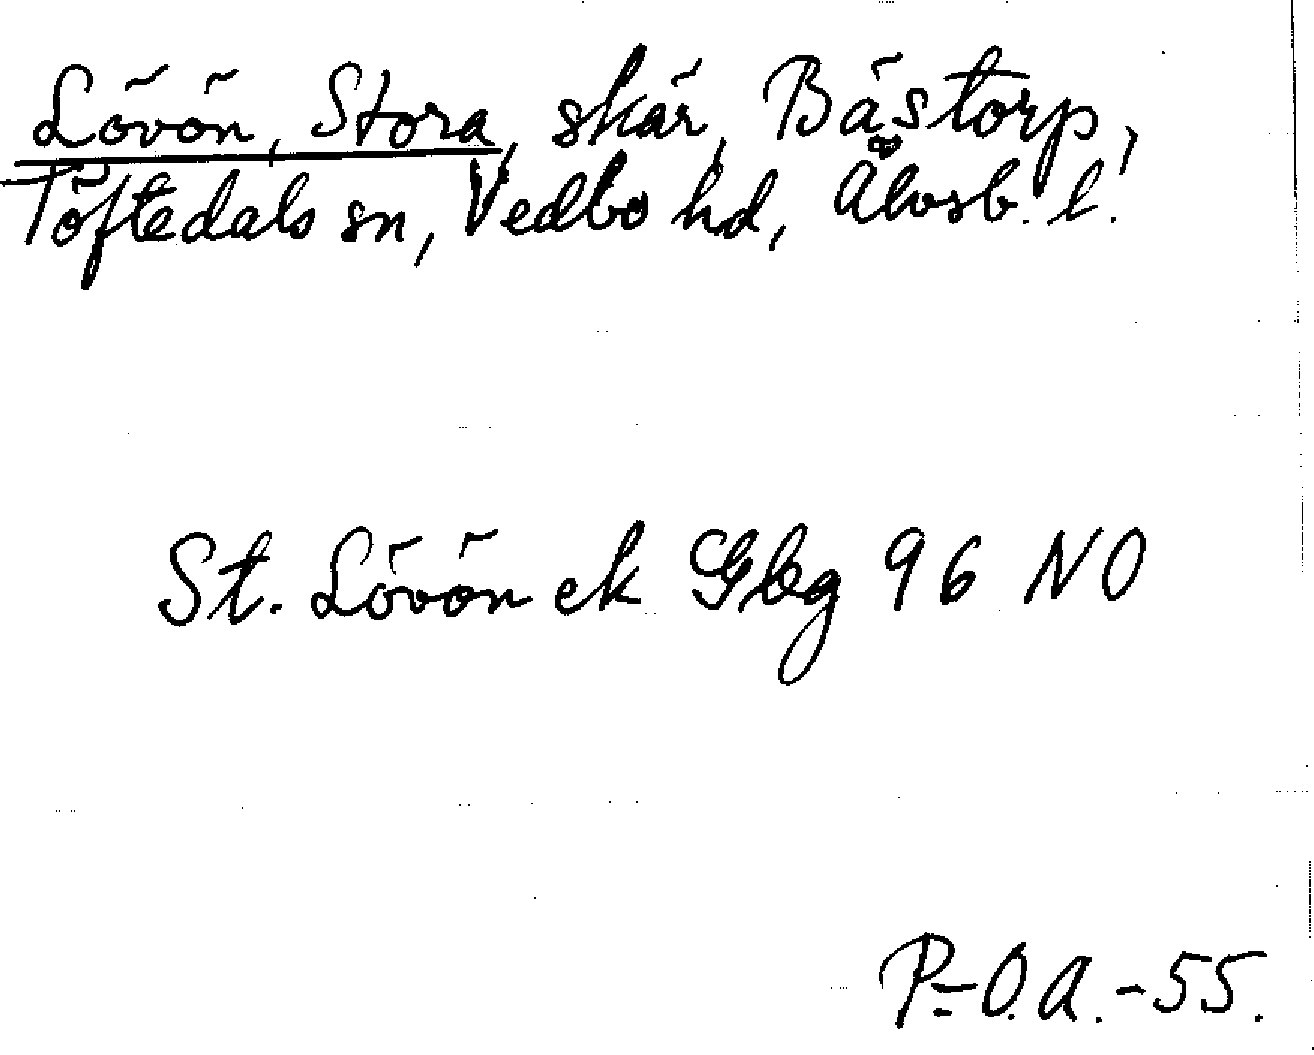 Lövön, Stora, skär, Bästorp,
Töftedals sn, Vedbo hd, Älvsb. l.
St. Lövön ek Gbg 96 NO
P.-O.A.-55.